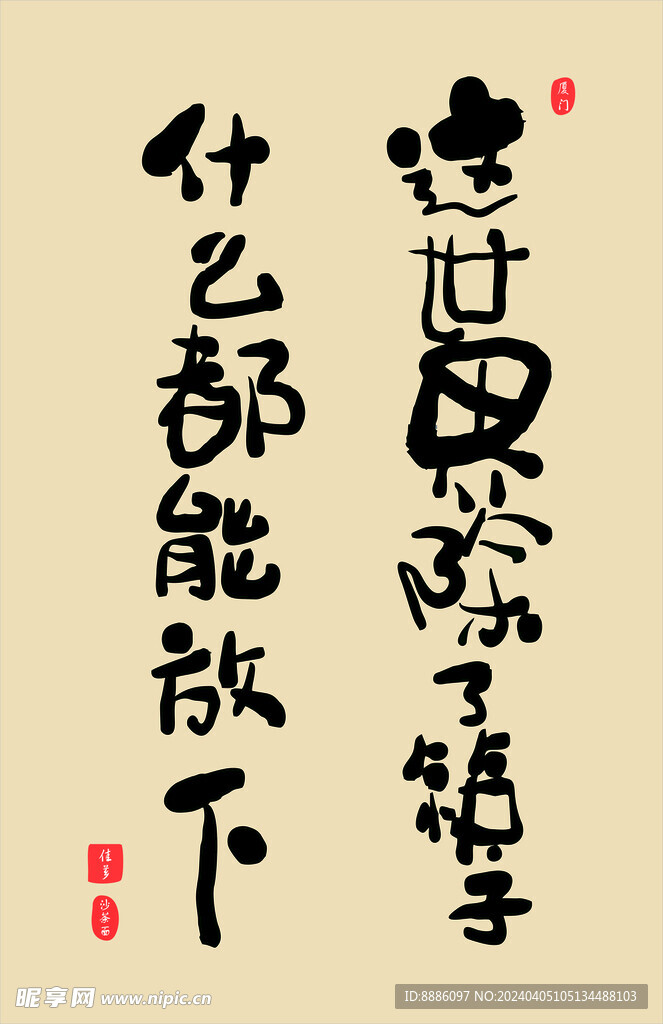 厦门
这世界除了筷子
什么都能放下
佳多
沙茶面
昵享网 www.nipic.cn
ID:8886097 NO:20240405105134488103